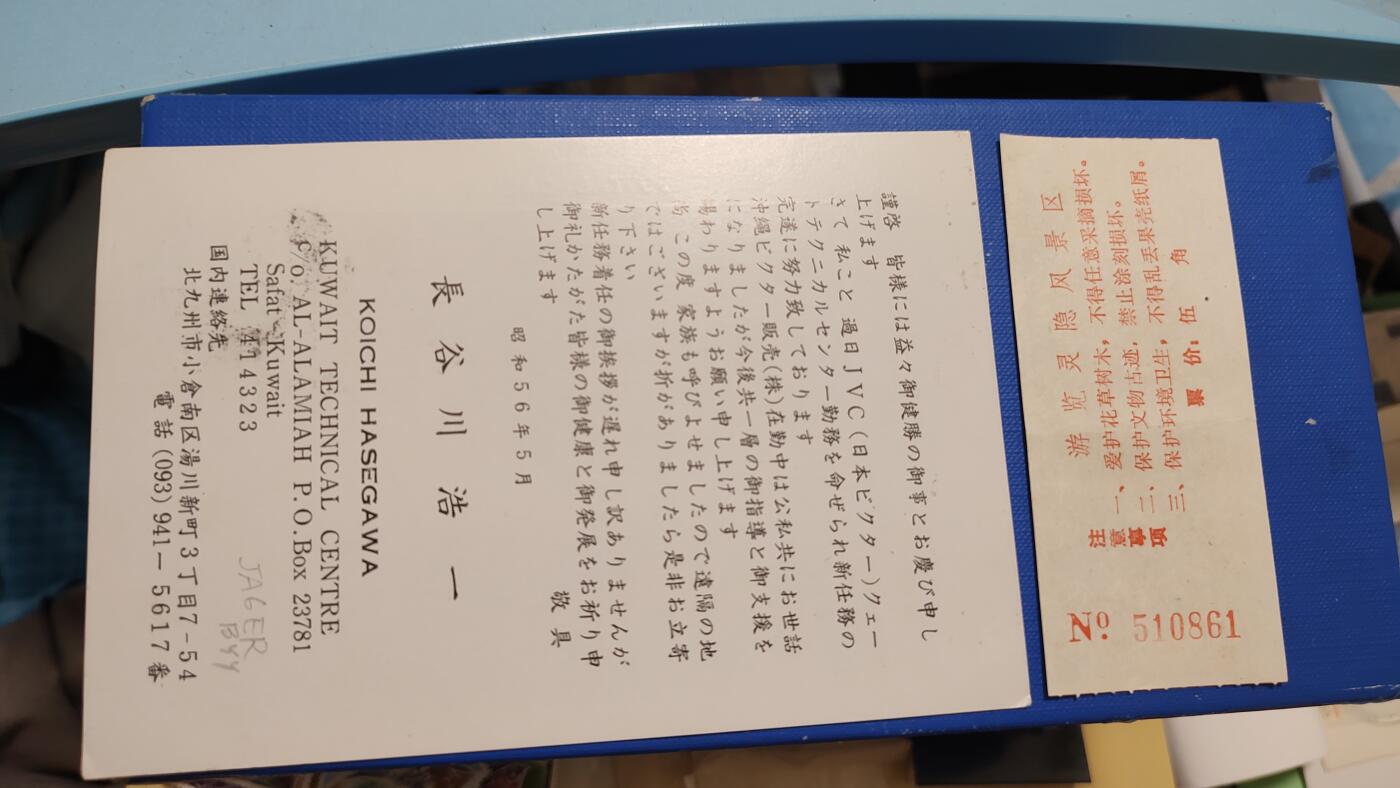 謹啓　皆様には益々御健勝の御事とお慶び申し
上げます
さて 私こと 過日JVC(日本ビクター)クェー
トテクニカルセンター勤務を命ぜられ新任務の
完遂に努力致しております
沖縄ビクター販売(株)在勤中は公私共にお世話
になりましたが今後共一層の御指導と御支援を
賜わりますようお願い申し上げます
尚 この度 家族も呼びよせましたので遠隔の地
ではございますが折がありましたら是非お立寄
り下さい
新任務着任の御挨拶が遅れ申し訳ありませんが
御礼かたがた皆様の御健康と御発展をお祈り申
し上げます
敬具
昭和56年5月
長谷川浩一
KOICHI HASEGAWA
KUWAIT TECHNICAL CENTRE
c/o. AL-ALAMIAH P.O.Box 23781
Safat Kuwait
TEL 414323
国内連絡先
北九州市小倉南区湯川新町3丁目7-54
電話(093)941-5617番
JAGER
BYY
游览灵隐风景区
注意事项
一、爱护花草树木，不得任意采摘损坏。
二、保护文物古迹，禁止涂刻损坏。
三、保护环境卫生，不得乱丢果壳纸屑。
票价：伍角
Nº 510861